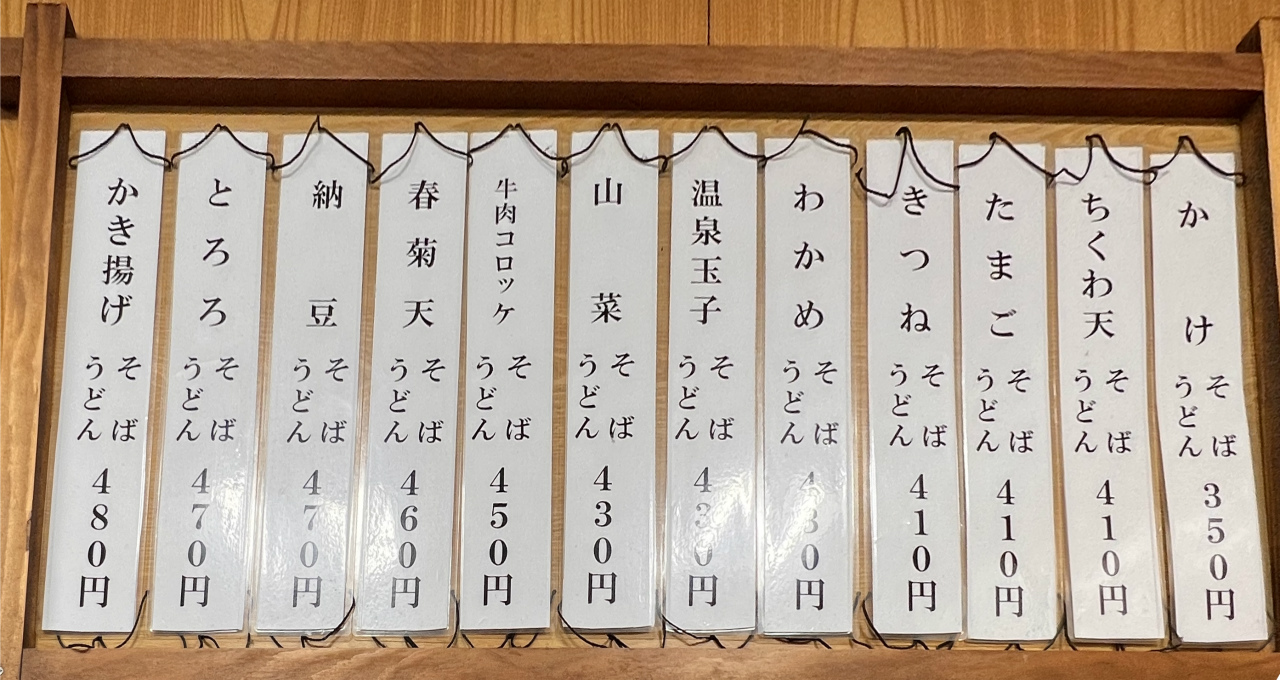 かけ そば うどん 350円
ちくわ天 そば うどん 410円
たまご そば うどん 410円
きつね そば うどん 410円
わかめ そば うどん 430円
温泉玉子 そば うどん 430円
山菜 そば うどん 430円
牛肉コロッケ そば うどん 450円
春菊天 そば うどん 460円
納豆 そば うどん 470円
とろろ そば うどん 470円
かき揚げ そば うどん 480円